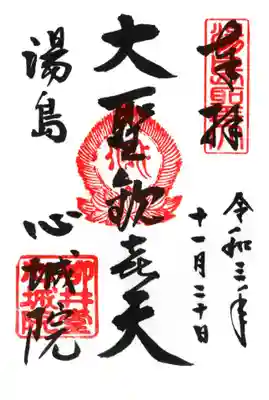 奉拝
令和三年
十一月二十日
大聖歓喜天
湯島
心城院
柳井堂
心城院